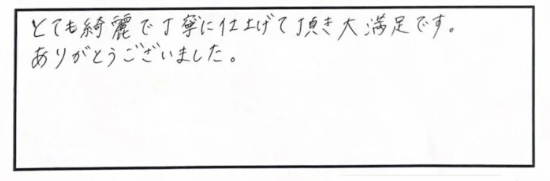 とても綺麗で丁寧に仕上げて頂き大満足です。
ありがとうございました。